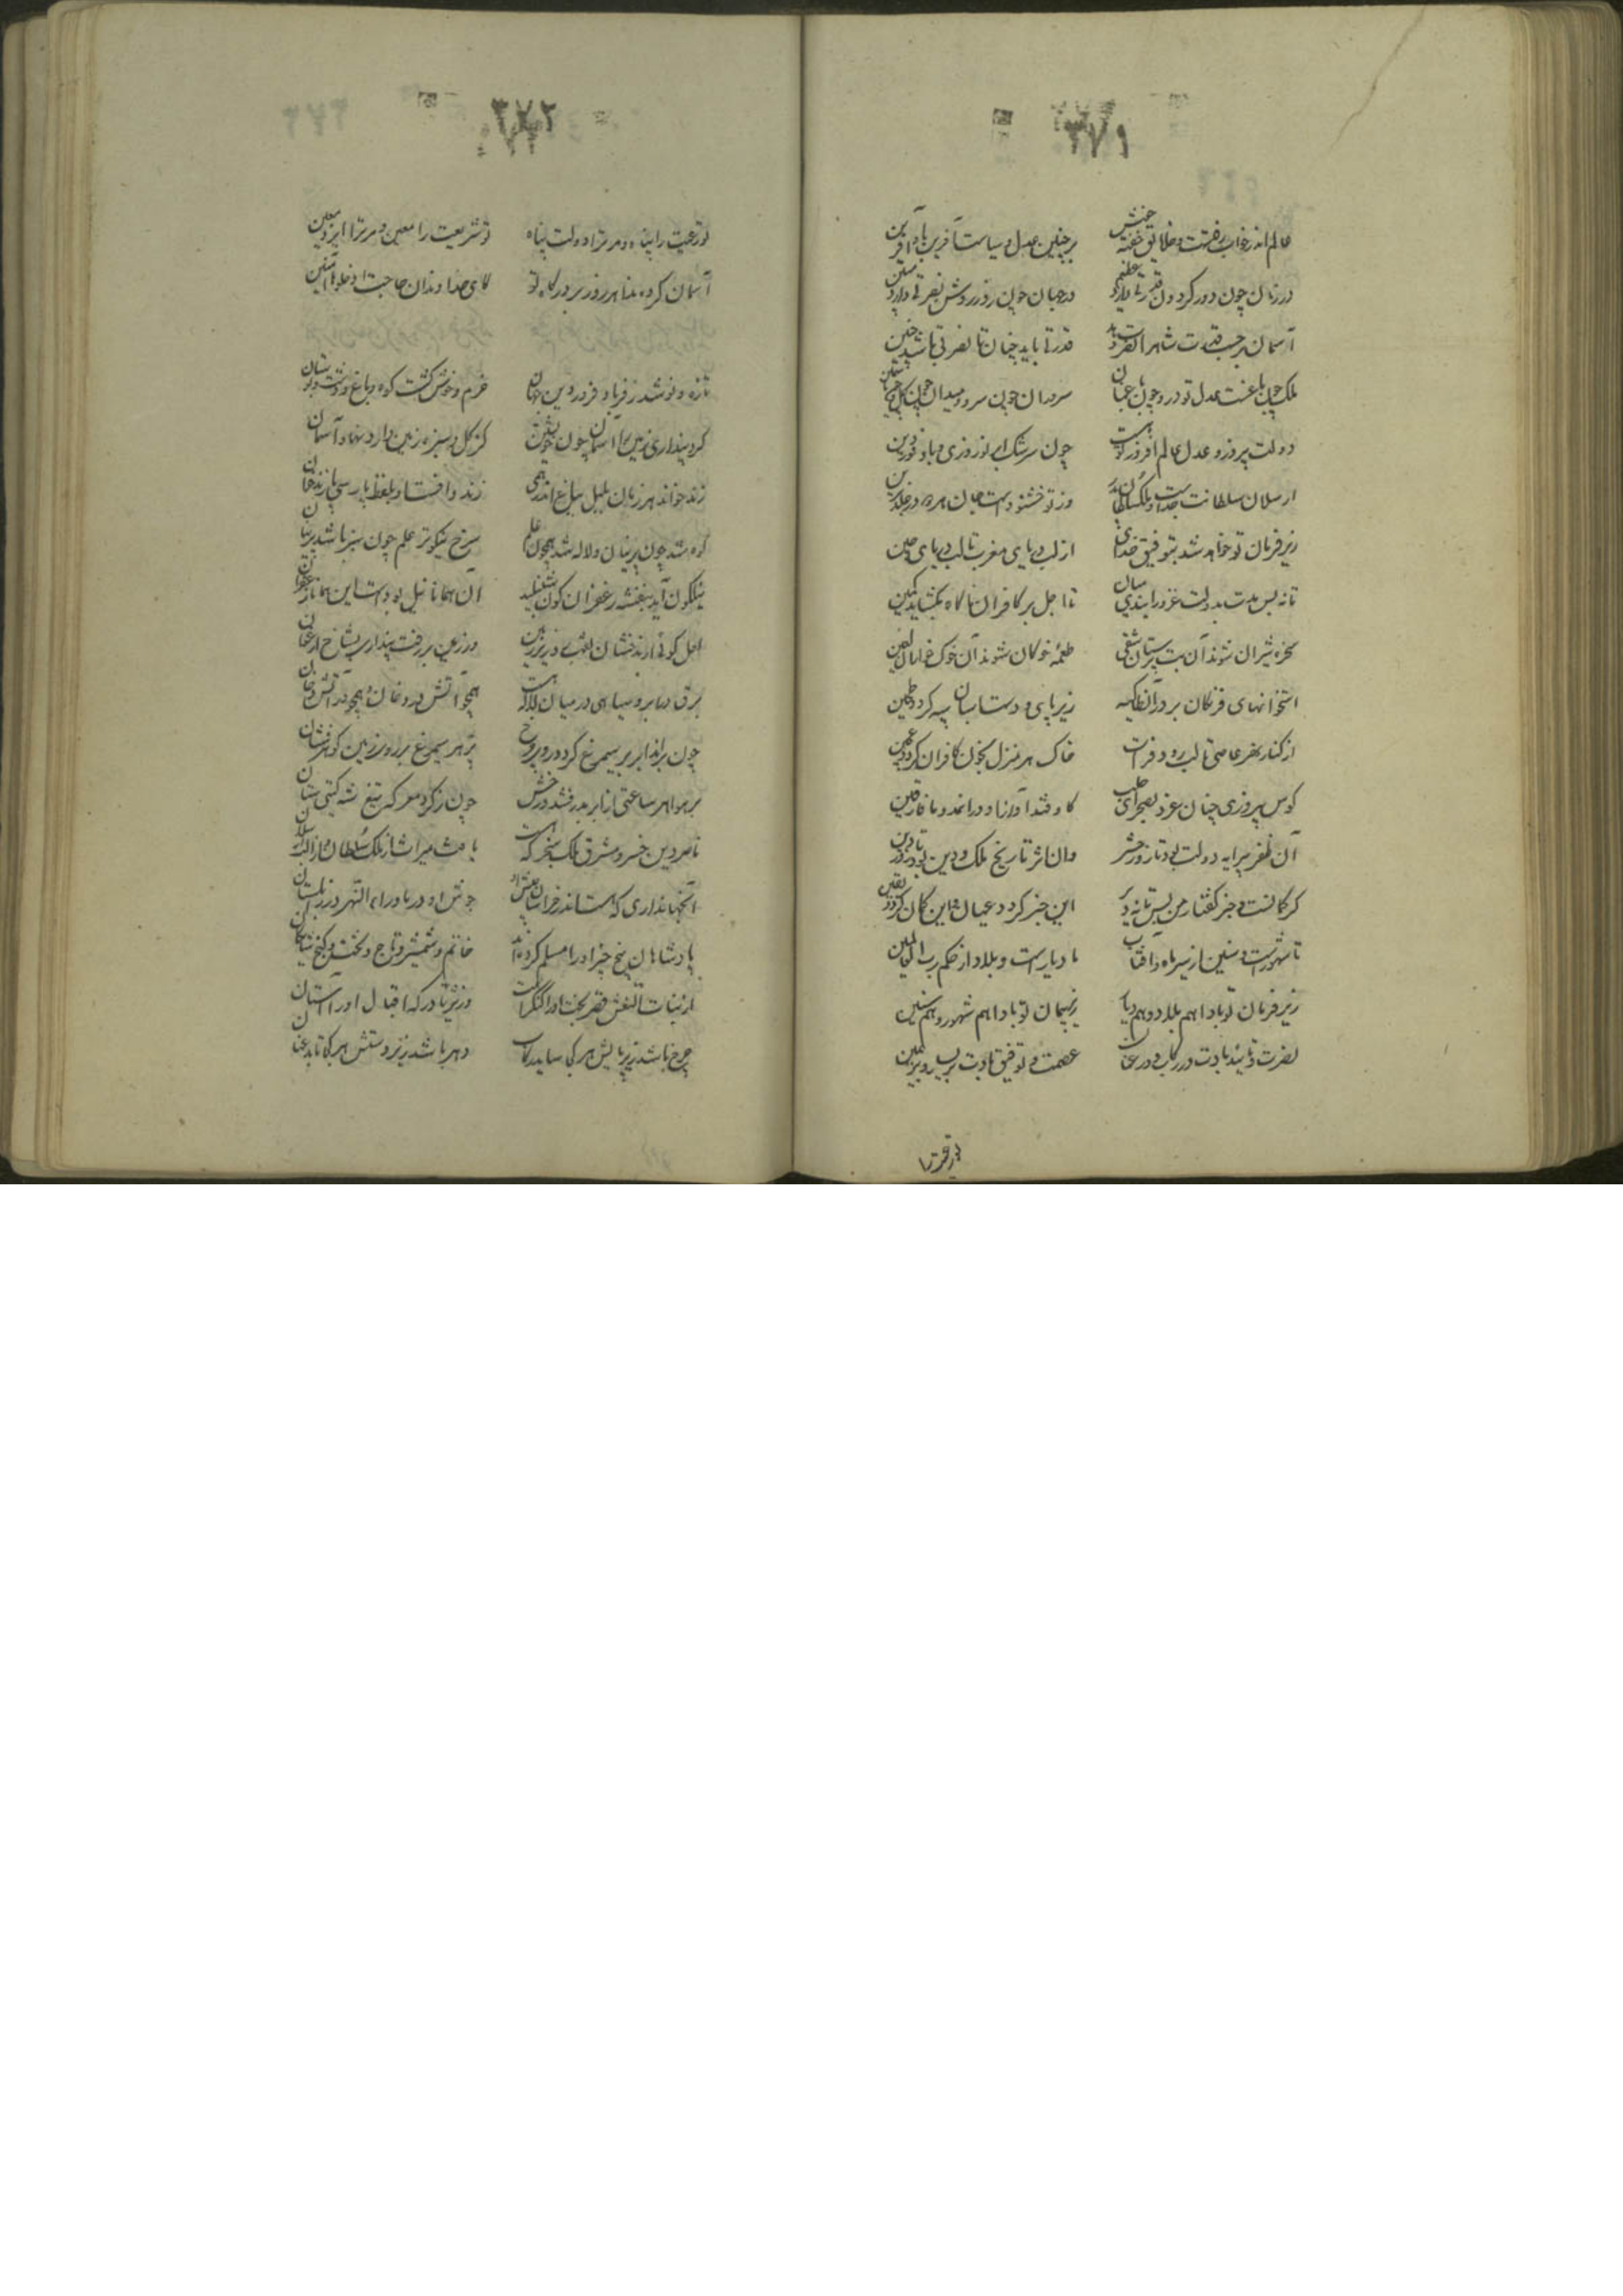 ۳۷۱
عالم اندر خواب رفتست و خلایق خفته خوش بر چنین عدل و سیاست آفرین باد آفرین
در زمان چون دور گردون قدرتی دارد عظیم در جهان چون روز روشن نصرتی دارد مبین
آسمان بر حسب قدرت شاه را نصرت دهد قدرتی باید چنان تا نصرتی باشد چنین
ملک چون باغست عدل تو درو چون باغبان سروران چون سرو و میدان چون گل و
دولت پیروز و عدل عالم افروز تو هست چون سرشک ابر نوروزی و باد فرودین
ارسلان سلطانت جدست و ملک سلطان پدر وز تو خشنودست جان هر دو در خلد برین
زیر فرمان تو خواهد شد بتوفیق خدای از لب دریای مغرب تا لب دریای چین
تا نه بس مدت بدولت غزو را بندی میان تا اجل بر کافران ناگاه بگشاید کمین
سخره شیران شوند آن بت پرستان شقی طعمه خوکان شوند آن خوک خواران لعین
استخوانهای فرنگان بر در انطاکیه زیر پای و دست اسبان پیه گردد طین
از کنار نهر عاصی تا لب رود فرات خاک هر منزل بخون کافران گردد عجین
کوس پیروزی چنان غرد بصحرای حلب کاوفتد آواز او در آمد و میافارقین
آن ظفر پیرایه دولت بود تا روز حشر وان اثر تاریخ ملک و دین بود تا روز دین
گر گمانست و خبر گفتار من پس تا نه دیر این خبر گردد عیان و این گمان گردد یقین
تا شهورست و سنین از سیر ماه و آفتاب تا دیارست و بلاد از حکم رب العالمین
زیر فرمان تو بادا هم بلاد و هم دیار زیر پیمان تو بادا هم شهور و هم سنین
نصرت و تایید بادت در رکاب و در عنان عصمت و توفیق بادت بر یسار و بر یمین
۳۷۲
تو رعیت را پناه و مر ترا دولت پناه تو شریعت را معین و مر ترا ایزد معین
آسمان کرده ندا هر روز بر درگاه تو کای خداوندان حاجت فادخلوها آمنین
تازه و نو شد ز فر باد فروردین جهان خرم و خوش گشت کوه و باغ و دشت و بوستان
گر بپنداری زمین را آسمان چون گر ز گل و سبزه زمین دارد نهاد آسمان
زند خواند هر زمان بلبل بباغ اندر همی زند وافستا و بلفظ پارسی پازندخوان
کوه شد چون پرنیان و لاله شد همچون علم سرخ نیکوتر علم چون سبز باشد پرنیان
نیلگون آید بنفشه زعفران گون شنبلید آن همانا نیل بودست این همانا زعفران
لعل گوئی از بدخشان در زیر زمین وز زمین بر رفت پنداری بشاخ ارغوان
برق در ابر و سیاهی در میان لاله هست همچو آتش در دخان و همچو در آتش دخان
چون براند ابر بر سیمرغ گردد روی چرخ پر هر سیمرغ بر روی زمین گوهرفشان
بر هوا هر ساعتی از ابر بدرفشد درخش چون ز گرد معرکه تیغ شه گیتی ستان
ناصر دین خسرو مشرق ملک سنجر که هست باعث میراث از ملک سلطان و ز الب ارسلان
آنجهانداری که هست اندر خراسان عیش او جوش او در ماوراء النهر و در زابلستان
پادشاهان پنج چیز او را مسلم کرده‌اند خاتم و شمشیر و تاج و تخت و گنج شایگان
از بنات النعش قصر بخت او را کنگرست وز ثریا درگه اقبال او را آستان
چرخ باشد زیر پایش هر کجا ساید رکاب دهر باشد زیر دستش هر کجا تابد عنان